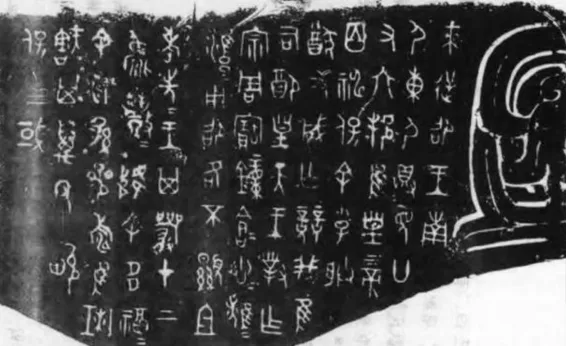 來逆卲王南
尸東尸具見廿
又六邦隹皇上帝
百神保余小子朕
猷又成亡競我隹
司配皇天王對乍
宗周寶鐘倉=悤=
雝=用卲各不顯且
考先王=其嚴才上
數=降余多福=
余孫參壽隹琍
㝬其萬年畯
保四或